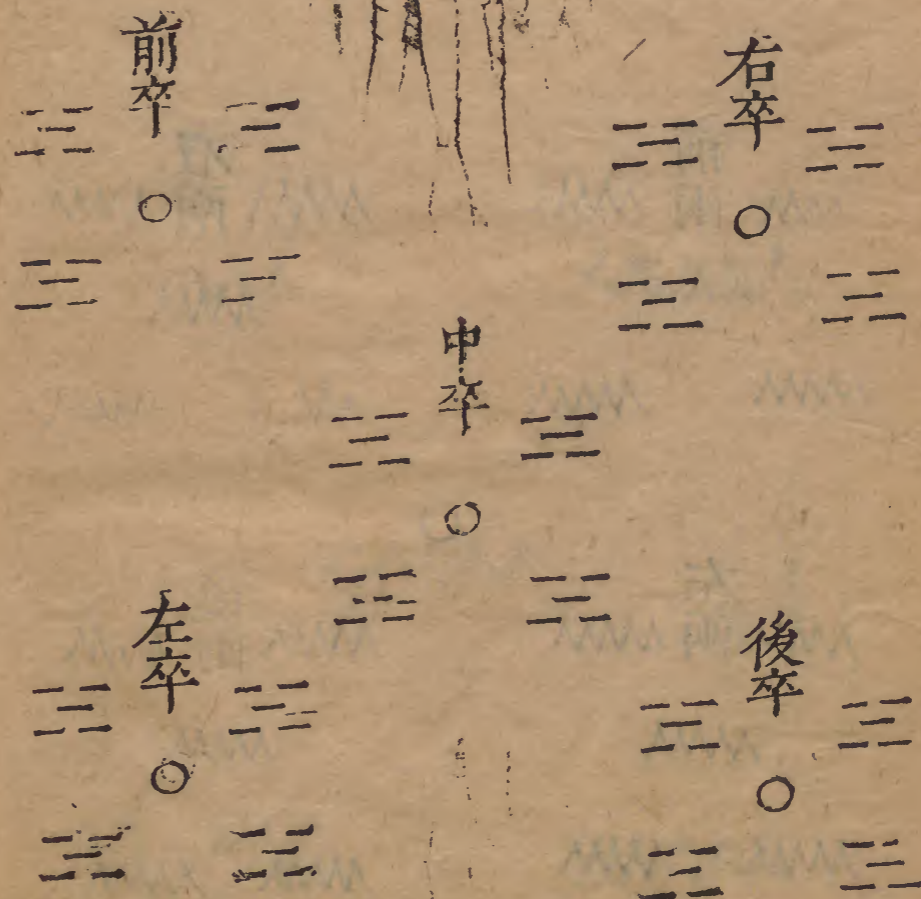 右卒
前卒
中卒
後卒
左卒